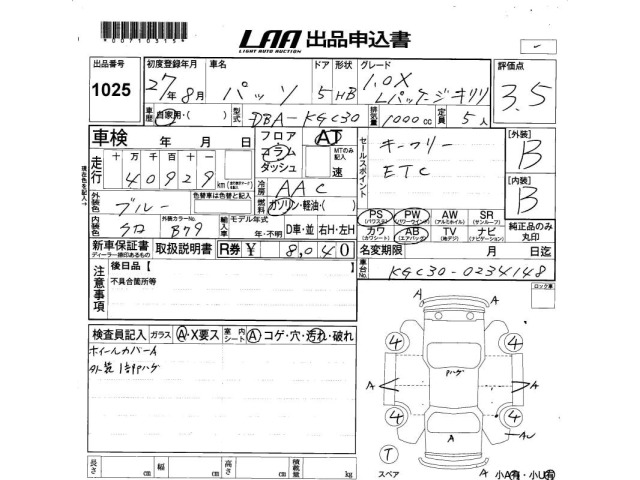 00710315
LAA 出品申込書
LIGHT AUTO AUCTION
出品番号
1025
初度登録年月
27年8月
車名
パッソ
ドア
5
形状
HB
グレード
1.0X
Lパッケージキリリ
評価点
3.5
車歴
自家用・( )
型式
DBA-KGC30
排気量
1000 cc
定員
5人
車検 年 月 日
走行
十万千百十一
40929
km
フロア
コラム
ダッシュ
AT
MTのみ記入
速
セールスポイント
キーフリー
ETC
[外装]
B
[内装]
B
外装色
ブルー
色替車は色替と記入
冷房
AAC
燃料
ガソリン・軽油・( )
内装色
クロ
外装カラーNo.
B79
輸入車
モデル年式
年・不明
D車・並
右H・左H
PS
(パワステ)
PW
(パワーウインド)
AW
(アルミホイル)
SR
(サンルーフ)
カワ
(カワシート)
AB
(エアバッグ)
TV
(地デジ)
ナビ
(ナビゲーション)
純正品のみ丸印
新車保証書
ディーラー捺印あるもの
取扱説明書
R券 ¥ 8,040
名変期限 月 日迄
車台No.
KGC30-0234148
注意事項
後日品【
不具合箇所等
ロック車
検査員記入
ガラス
A・X要ス
室内シート
A コゲ・穴・汚れ・破れ
ホイールカバーA
外装1部Pハゲ
A
4
4
Pハゲ
A
A
4
4
A
Aん
T
スペア
A
小A有・小U有
長さ cm
幅 cm
高さ cm
積載量 kg